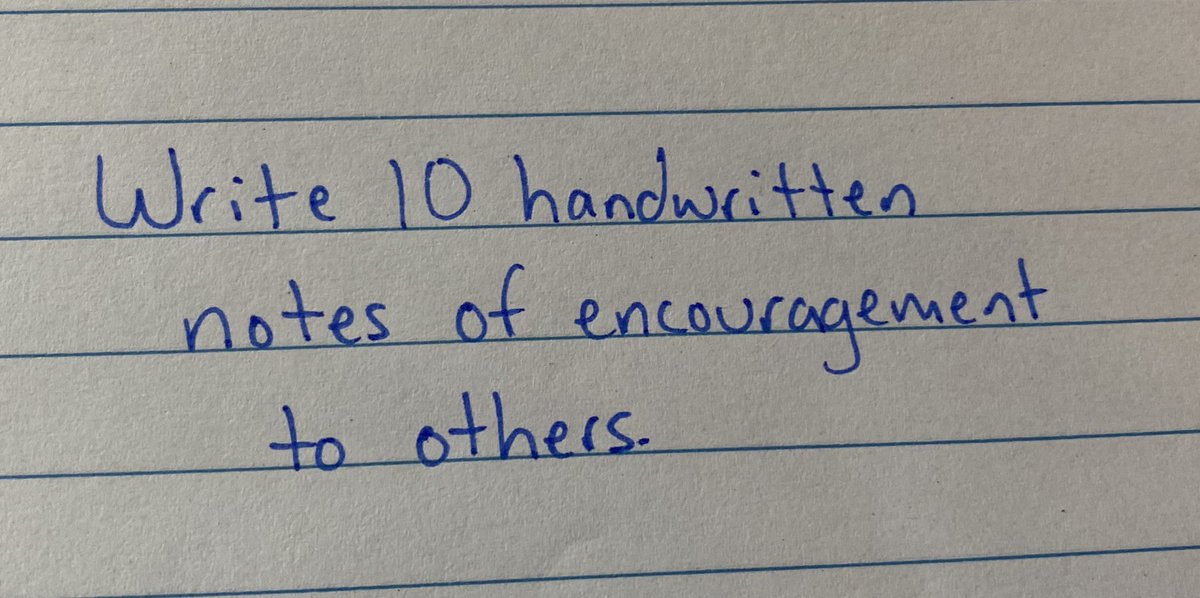 Write 10 handwritten
notes of encouragement
to others.